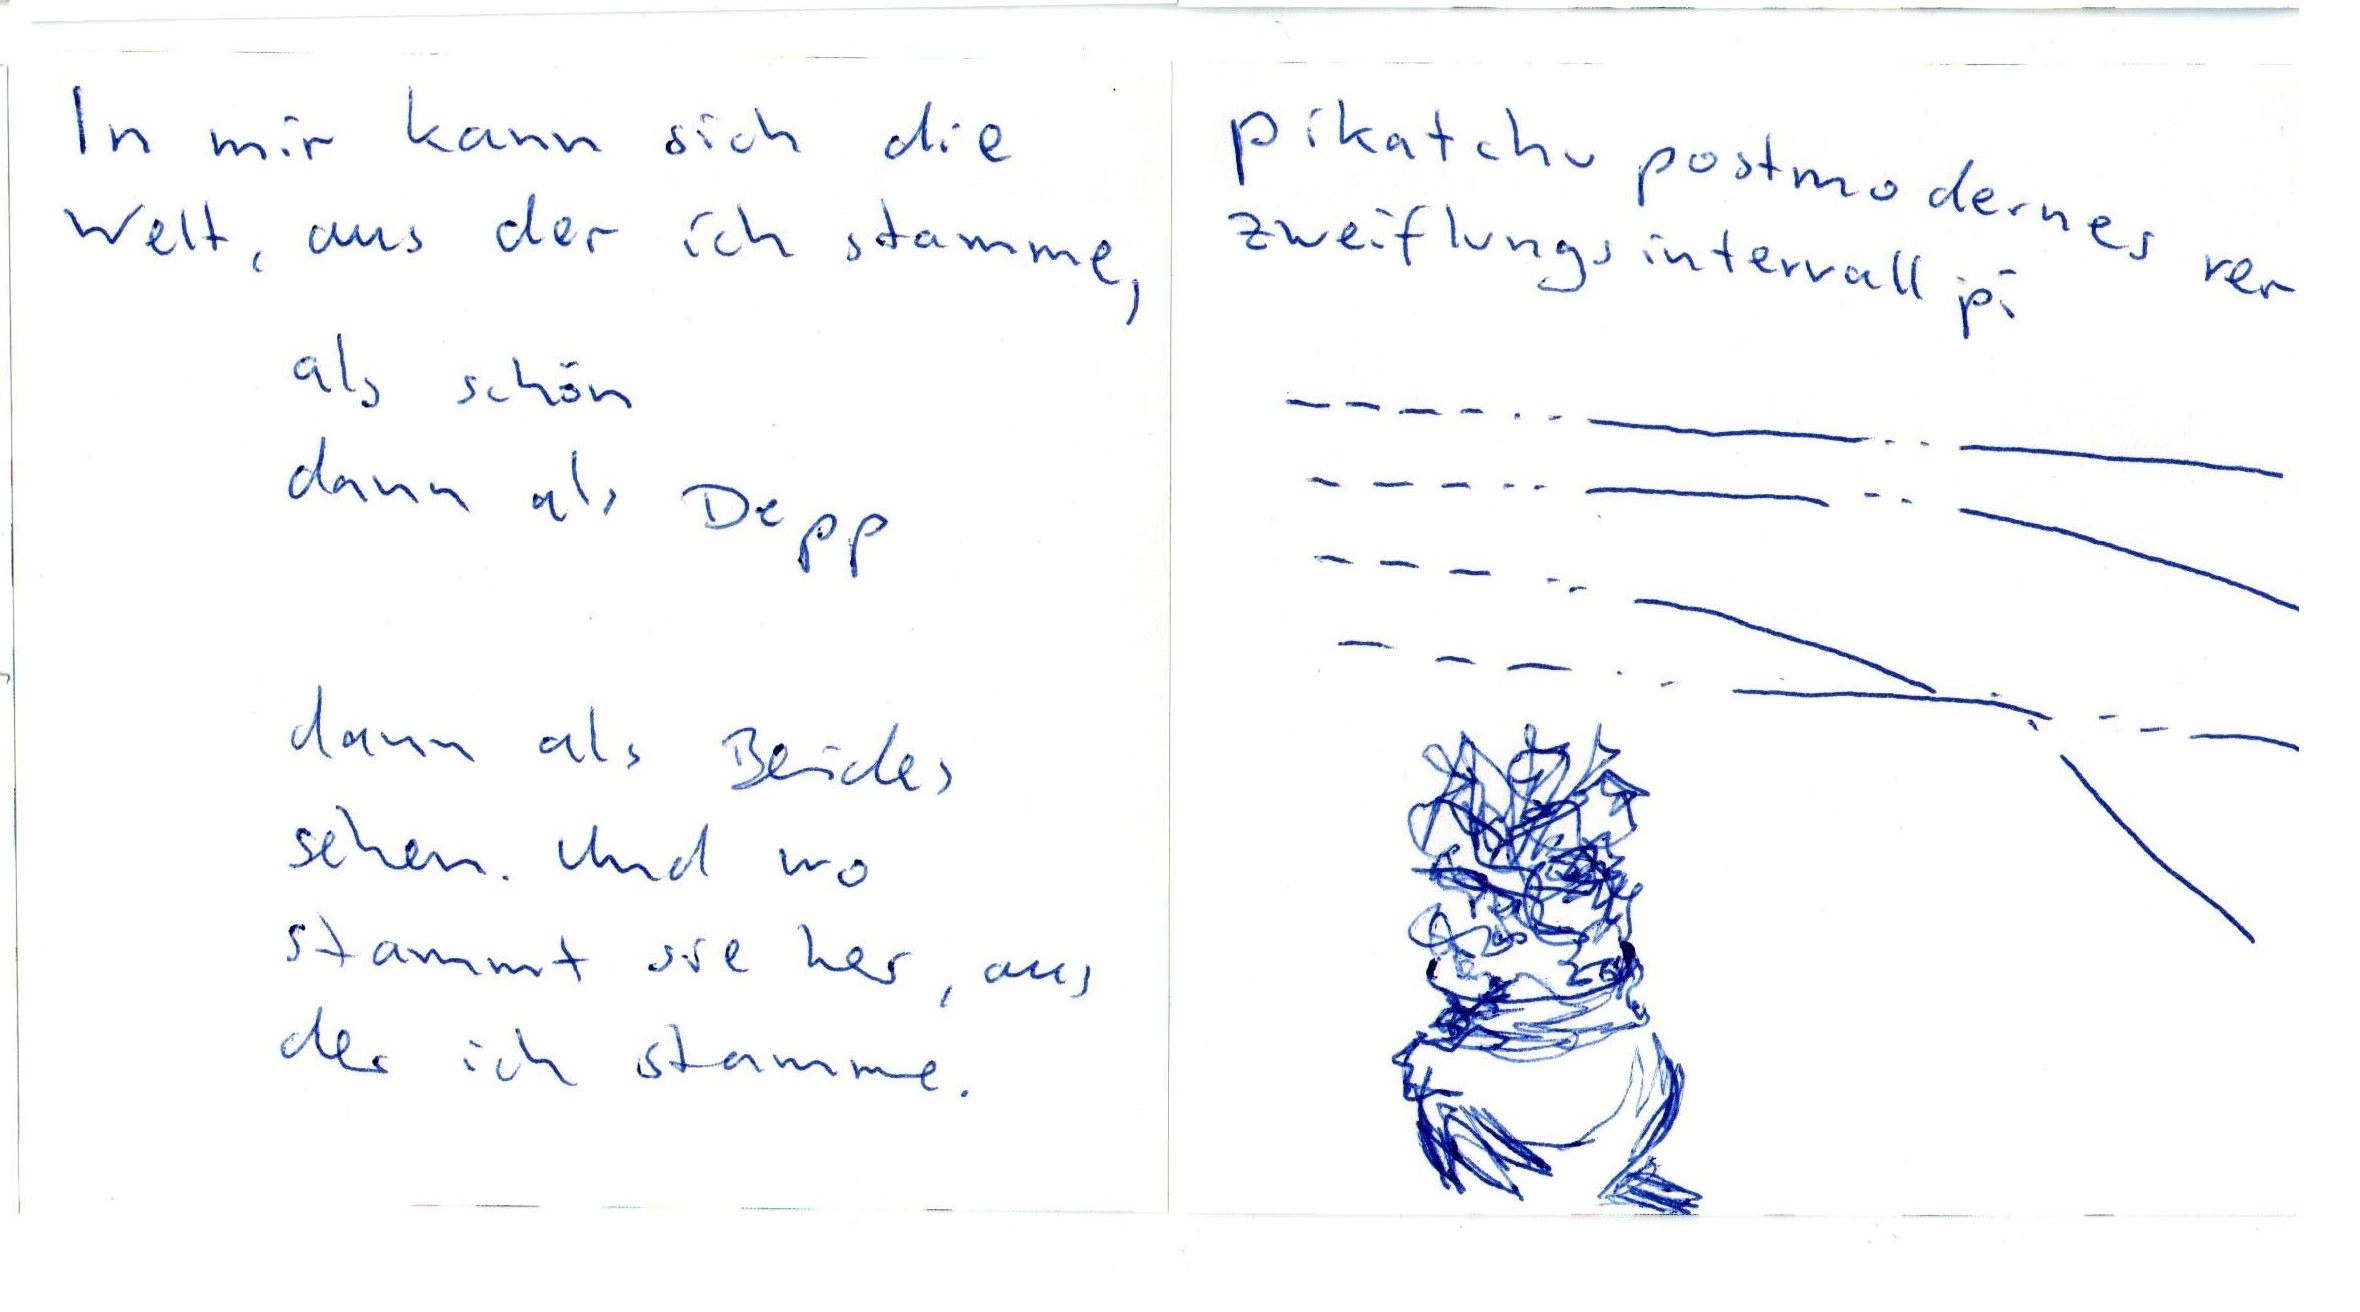 In mir kann sich die
Welt, aus der ich stamme,
als schön
dann als Depp
dann als Beides
sehen. Und wo
stammt sie her, aus
der ich stamme.
pikatchu postmodernes ver
zweiflungsintervall pi